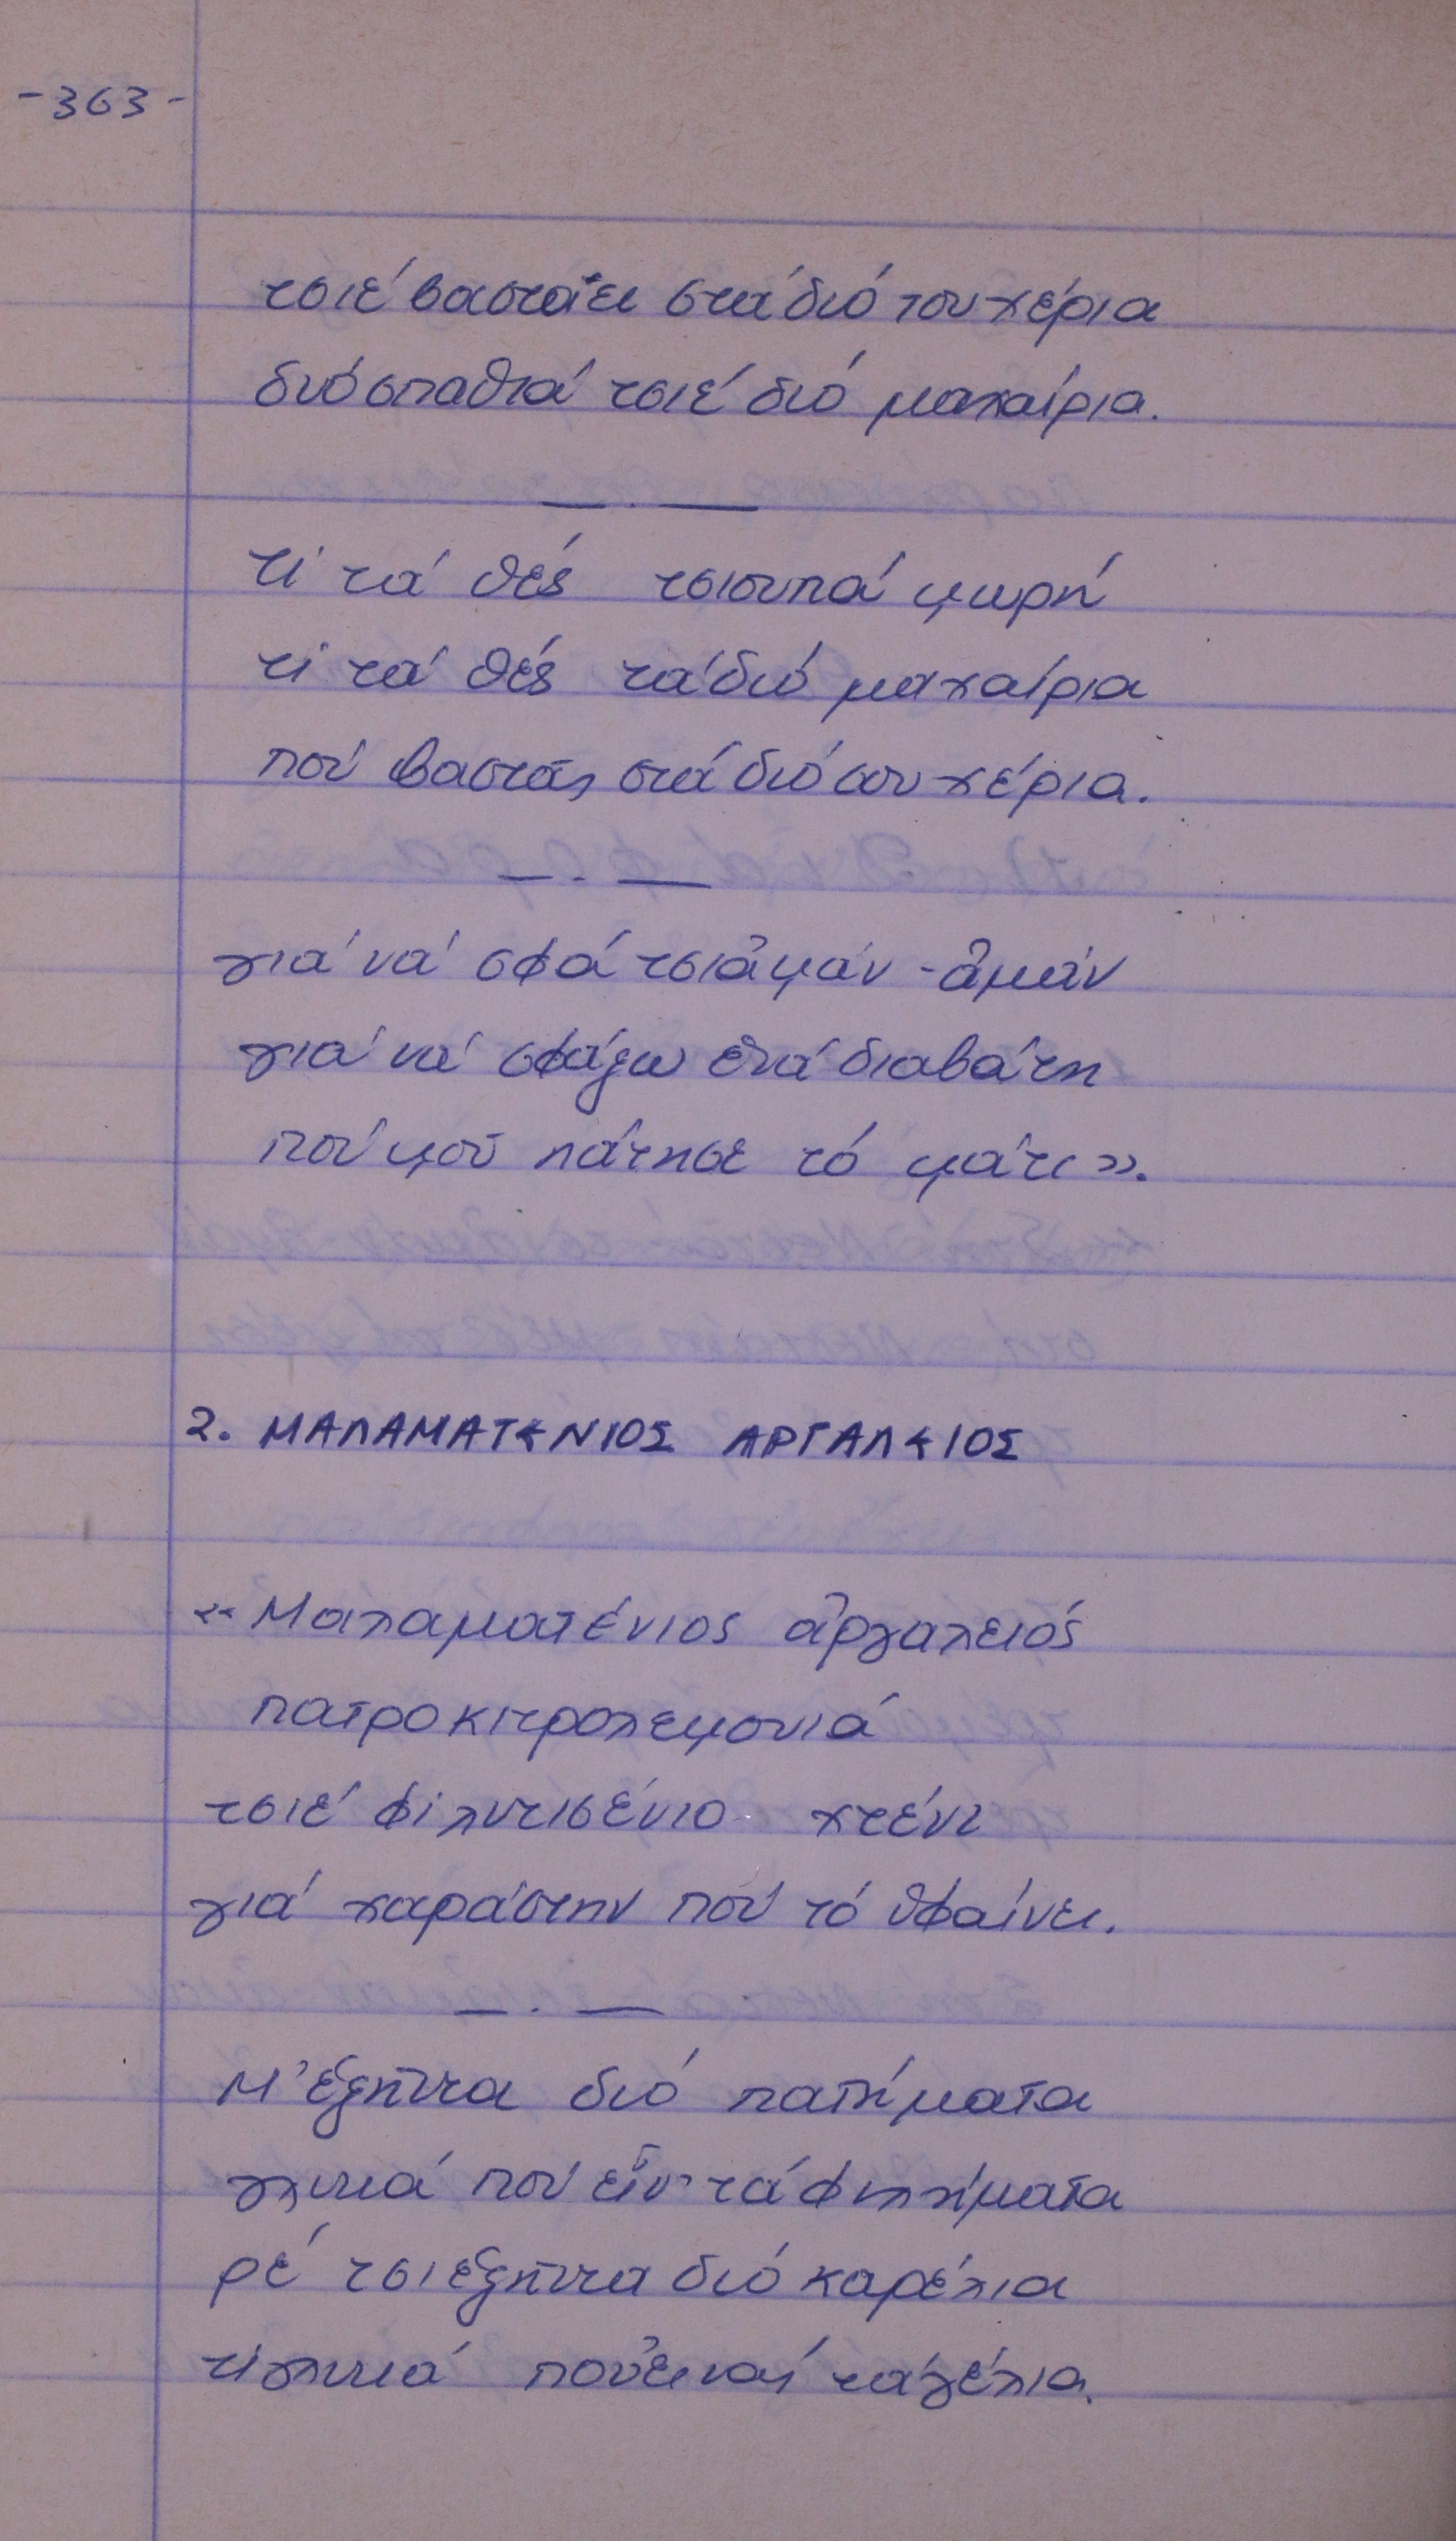 -363-
τσιέ βαστάει στά διό του χέρια
διό σπαθιά τσιέ διό μαχαίρια.
τί τά θές τσιουπά μωρή
τί τά θές τά διό μαχαίρια
πού βαστᾶς στά διό σου χέρια.
γιά νά σφά τσιἀμάν - ἀμάν
γιά νά σφάξω ἐνά διαβάτη
πού μοῦ πάτησε τό μάτι».
2. ΜΑΛΑΜΑΤΕΝΙΟΣ ΑΡΓΑΛΕΙΟΣ
«Μαλαματένιος ἀργαλειός
πατροκιτρολεμονιά
τσιέ φιλντισένιο χτένι
γιά χαράστην πού τό ὑφαίνει.
Μ' ἑξῆντα διό πατήματα
γλυκιά πού εἶν' τά φιλήματα
ρέ τσι ἑξῆντα διό καρέλια
τί γλυκιά πού εἶναι τά γέλια.